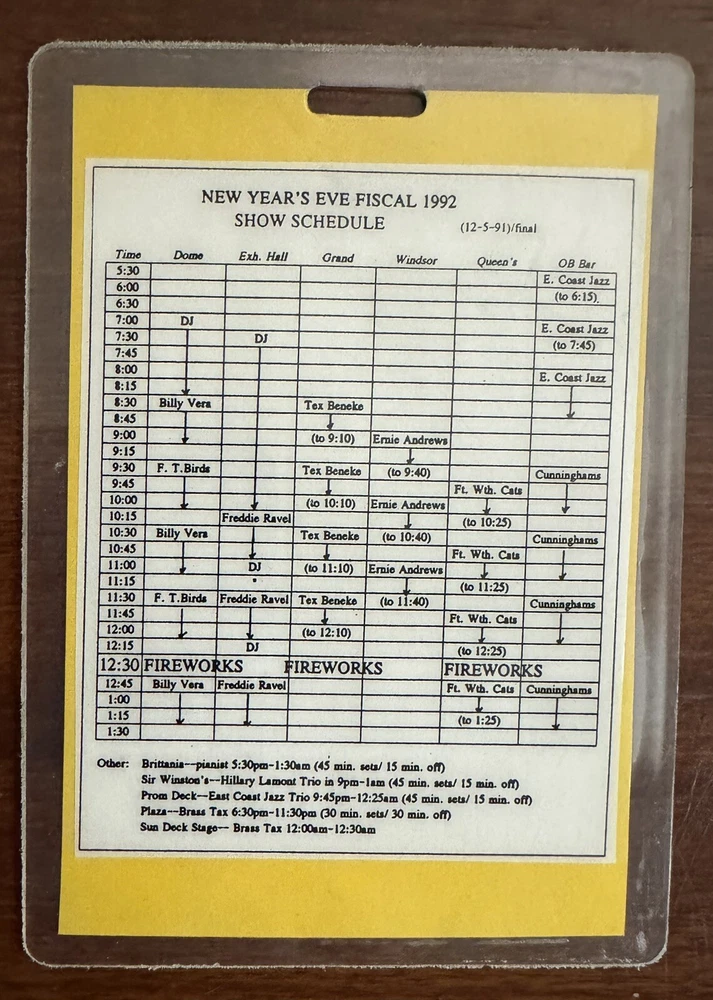 NEW YEAR'S EVE FISCAL 1992
SHOW SCHEDULE (12-5-91)/final
Time Dome Exh. Hall Grand Windsor Queen's OB Bar
5:30 E. Coast Jazz
6:00 (to 6:15)
6:30
7:00 DJ E. Coast Jazz
7:30 DJ (to 7:45)
7:45
8:00 E. Coast Jazz
8:15
8:30 Billy Vera Tex Beneke
8:45
9:00 (to 9:10) Ernie Andrews
9:15
9:30 F. T.Birds Tex Beneke (to 9:40) Cunninghams
9:45 Ft. Wth. Cats
10:00 (to 10:10) Ernie Andrews
10:15 Freddie Ravel (to 10:25)
10:30 Billy Vera Tex Beneke (to 10:40) Cunninghams
10:45 Ft. Wth. Cats
11:00 DJ (to 11:10) Ernie Andrews
11:15 (to 11:25)
11:30 F. T.Birds Freddie Ravel Tex Beneke (to 11:40) Cunninghams
11:45 Ft. Wth. Cats
12:00 (to 12:10)
12:15 DJ (to 12:25)
12:30 FIREWORKS FIREWORKS FIREWORKS
12:45 Billy Vera Freddie Ravel Ft. Wth. Cats Cunninghams
1:00
1:15 (to 1:25)
1:30
Other: Brittania--pianist 5:30pm-1:30am (45 min. sets/ 15 min. off)
Sir Winston's--Hillary Lamont Trio in 9pm-1am (45 min. sets/ 15 min. off)
Prom Deck--East Coast Jazz Trio 9:45pm-12:25am (45 min. sets/ 15 min. off)
Plaza--Brass Tax 6:30pm-11:30pm (30 min. sets/ 30 min. off)
Sun Deck Stage-- Brass Tax 12:00am-12:30am